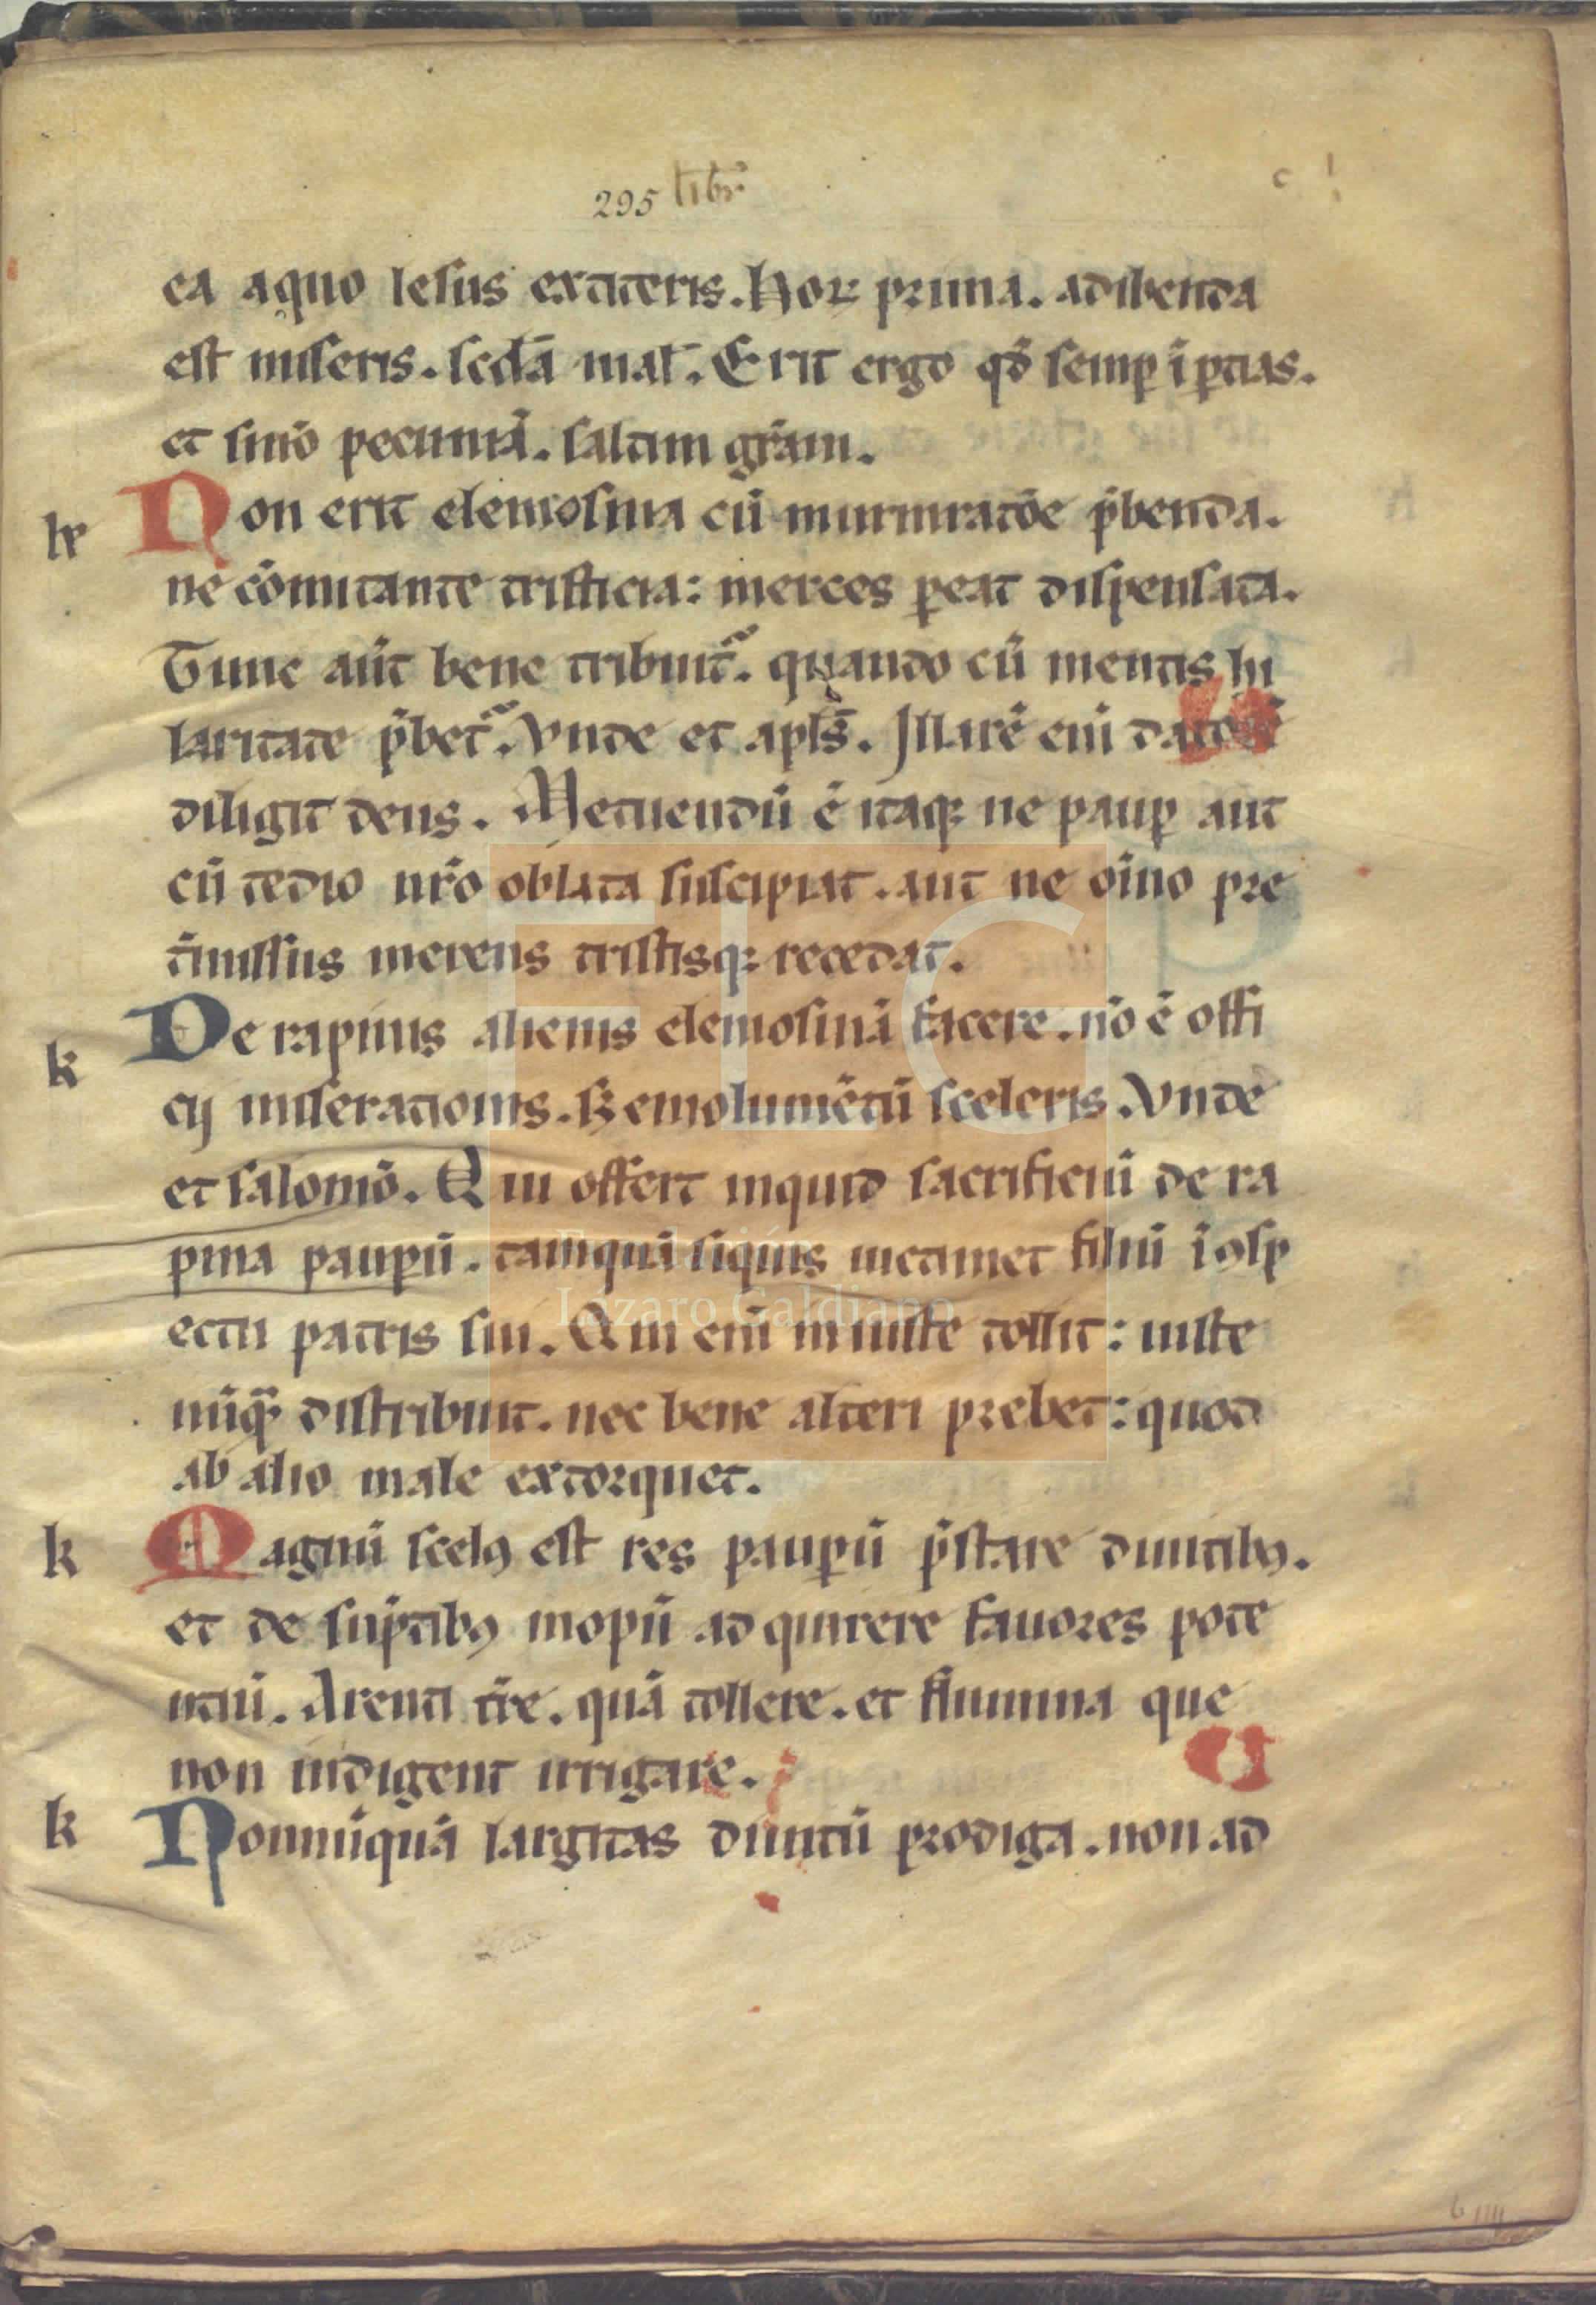 295 libr
ea aquo lesus extiteris. Hoꝝ prima. adibenda
est miseris. scďa mał. Erit ergo qđ semꝑ īꝑtias.
et sinō pecuniā. saltim gr̄am.
lx Non erit elemosina cū murmuratōe p̄benda.
ne cōmitante tristicia: merces ꝑeat dispensata.
Tunc aūt bene tribuit᷑. quando cū mentis hi
laritate p̄bet᷑. Vnde et apl̄s. Illarē enī datorē
diligit deus. Metuendū ē itaqꝫ ne pauꝑ aut
cū tedio nr̄o oblata suscipiat. aut ne oīno pre
t̄missus merens tristisqꝫ recedat.
k De rapinis alienis elemosinā facere. nō ē offi
cij miserationis. sꝫ emolumētū sceleris. Vnde
et salomō. Qui offert inquid sacrificiū de ra
pina pauꝑū. tamquā siquis uictimet filiū īꝯsp
ectu patris sui. Qui enī iniuste tollit: iuste
nūqᷓ distribuit. nec bene alteri prebet: quod
ab alio male extorquet.
k Magnū scelꝰ est res pauꝑū p̄stare diuitibꝰ.
et de sūptibꝰ inopū adquirere fauores pote
ntiū. Arenti tr̄e. quā tollere. et flumina que
non indigent irrigare.
k Nonnūquā largitas diuitū prodiga. non ad
FLG
Fundación
Lázaro Galdiano